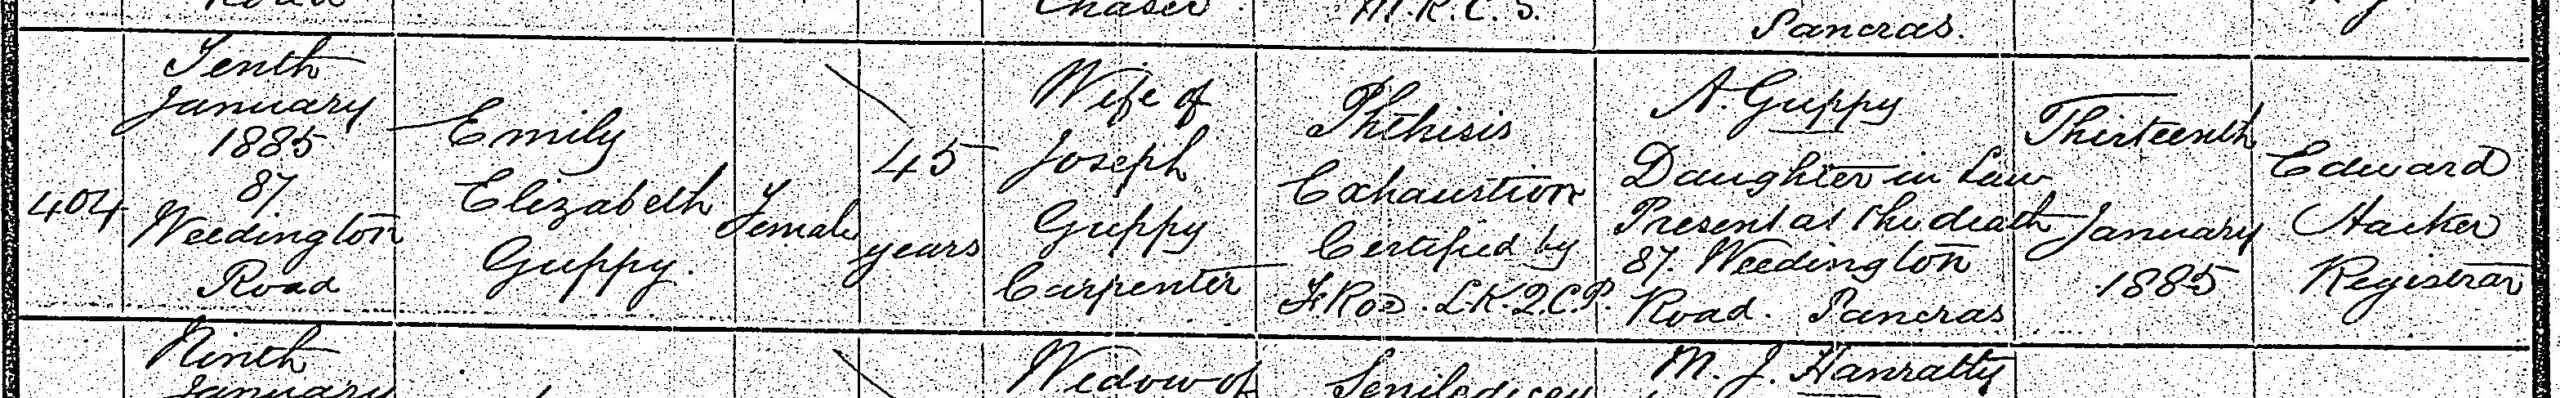 chaser
M.R.C.S.
Pancras.
404
Tenth
January
1885
87
Weedington
Road
Emily
Elizabeth
Guppy.
Female
45
years
Wife of
Joseph
Guppy
Carpenter
Phthisis
Exhaustion
Certified by
L.K.Q.C.P.
A. Guppy
Daughter in Law
Present at the death
87. Weedington
Road. Pancras
Thirteenth
January
1885
Edward
Hacker
Registrar
Ninth
January
Widow of
Senile decay
M. J. Hanratty